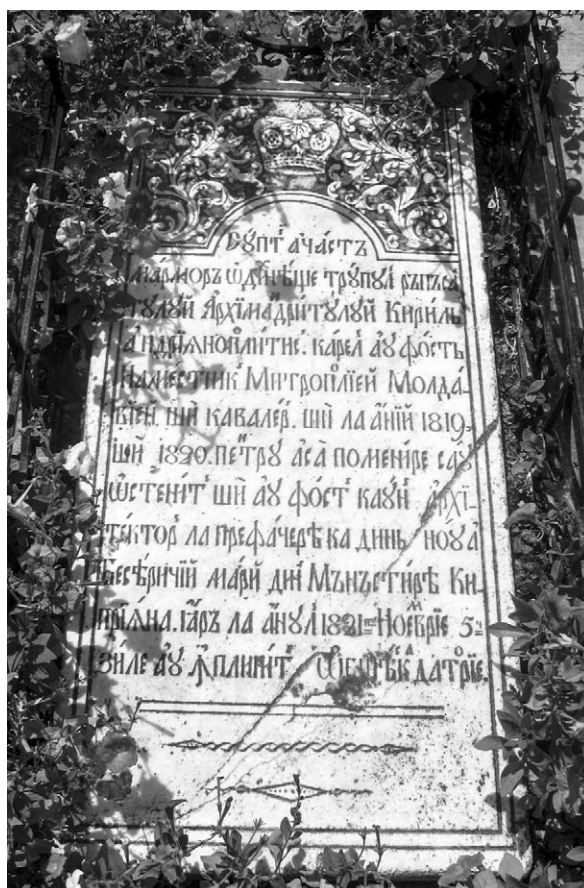 Сꙋпт ачастъ
марморъ ѡдихнѣще трꙋпꙋл рѫпъса
тꙋлꙋй Архїмандритꙋлꙋй Кирилъ
андрїянополитис. кареле аꙋ фостъ
Намесник Митрополїей Молда
вїей. ший кавалер. ший ла аний 1819.
ший 1820. пентрꙋ аса поменире саꙋ
ѡстенит ший аꙋ фост ка ꙋн архї-
тектор ла префачерѣ ка динъ ноꙋ а
Бесеричїй марй дин Мънъстирѣ Ки-
прїяна. їаръ ла анꙋл 1821 Ноемврїе 5
зиле аꙋ ꙟплинит даторїе.